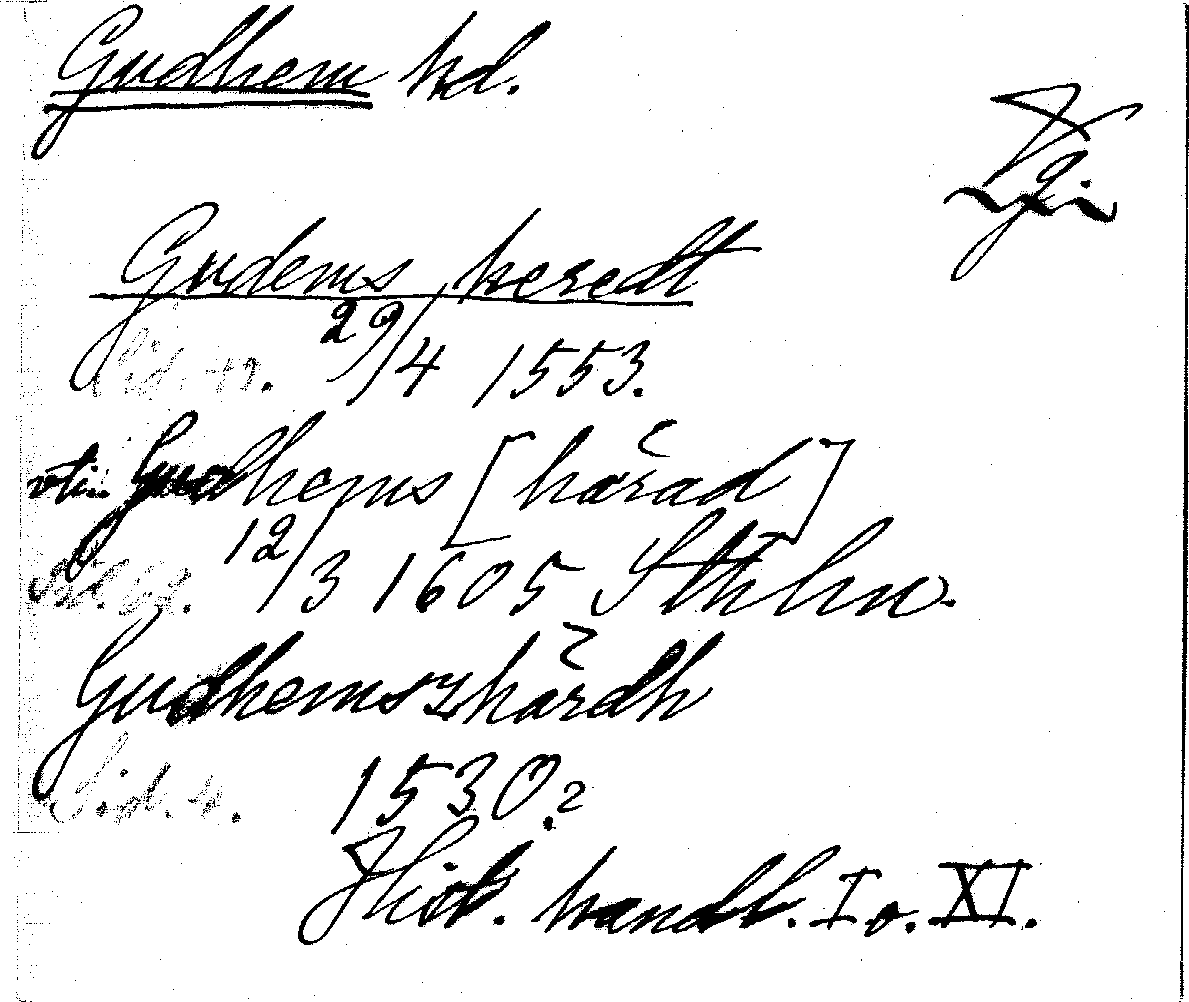 Gudhem hd.
Vg.
Gudems heredt
Sid. 49. 29/4 1553.
Gudhems [härad]
12/3 1605 Sthlm.
Gudhemszhärdh
Sid. 4. 1530?
Hist. handl. I o. XI.